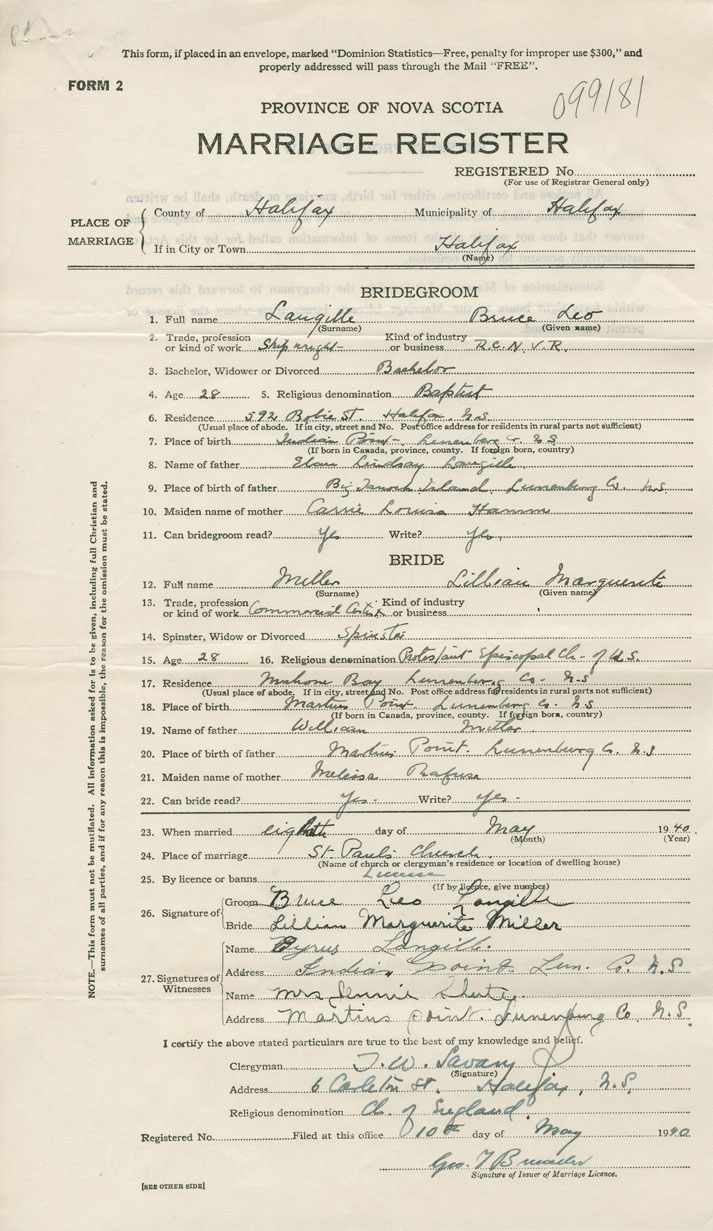 This form, if placed in an envelope, marked "Dominion Statistics—Free, penalty for improper use $300," and
properly addressed will pass through the Mail "FREE".
FORM 2
099181
PROVINCE OF NOVA SCOTIA
MARRIAGE REGISTER
REGISTERED No.
(For use of Registrar General only)
PLACE OF MARRIAGE
County of Halifax Municipality of Halifax
If in City or Town Halifax
(Name)
BRIDEGROOM
1. Full name Langille Bruce Leo
(Surname) (Given name)
2. Trade, profession or kind of work Shipwright Kind of industry or business R.C.N.V.R.
3. Bachelor, Widower or Divorced Bachelor
4. Age 28 5. Religious denomination Baptist
6. Residence 592 Robie St. Halifax, N.S
(Usual place of abode. If in city, street and No. Post office address for residents in rural parts not sufficient)
7. Place of birth Indian Point, Lunenburg Co. N.S
(If born in Canada, province, county. If foreign born, country)
8. Name of father Lindsay Langille
9. Place of birth of father Big Tancook Island, Lunenburg Co. N.S.
10. Maiden name of mother Carrie Louisa Hamm
11. Can bridegroom read? Yes Write? Yes.
BRIDE
12. Full name Miller Lillian Marguerite
(Surname) (Given name)
13. Trade, profession or kind of work Commercial Artist Kind of industry or business
14. Spinster, Widow or Divorced Spinster
15. Age 28 16. Religious denomination Protestant Episcopal Ch. of U.S.
17. Residence Mahone Bay Lunenburg Co. N.S
(Usual place of abode. If in city, street and No. Post office address for residents in rural parts not sufficient)
18. Place of birth Martins Point. Lunenburg Co. N.S
(If born in Canada, province, county. If foreign born, country)
19. Name of father William Miller
20. Place of birth of father Martins Point. Lunenburg Co. N.S
21. Maiden name of mother Melissa Rafuse
22. Can bride read? Yes. Write? Yes.
23. When married eighth day of May 1940.
(Month) (Year)
24. Place of marriage St. Paul's Church.
(Name of church or clergyman's residence or location of dwelling house)
25. By licence or banns License
(If by licence, give number)
26. Signature of
Groom Bruce Leo Langille
Bride Lillian Marguerite Miller
27. Signatures of Witnesses
Name Byrus Langille.
Address Indian Point Lun. Co. N.S
Name Mrs Jennie
Address Martins Point. Lunenburg Co, N.S.
I certify the above stated particulars are true to the best of my knowledge and belief.
Clergyman T. W. Savary
(Signature)
Address 6 Carleton St. Halifax, N.S.
Religious denomination Ch. of England
Registered No. Filed at this office 10th day of May 1940
Geo. T
Signature of Issuer of Marriage Licence.
[SEE OTHER SIDE]
NOTE.—This form must not be mutilated. All information asked for is to be given, including full Christian and
surnames of all parties, and if for any reason this is impossible, the reason for the omission must be stated.